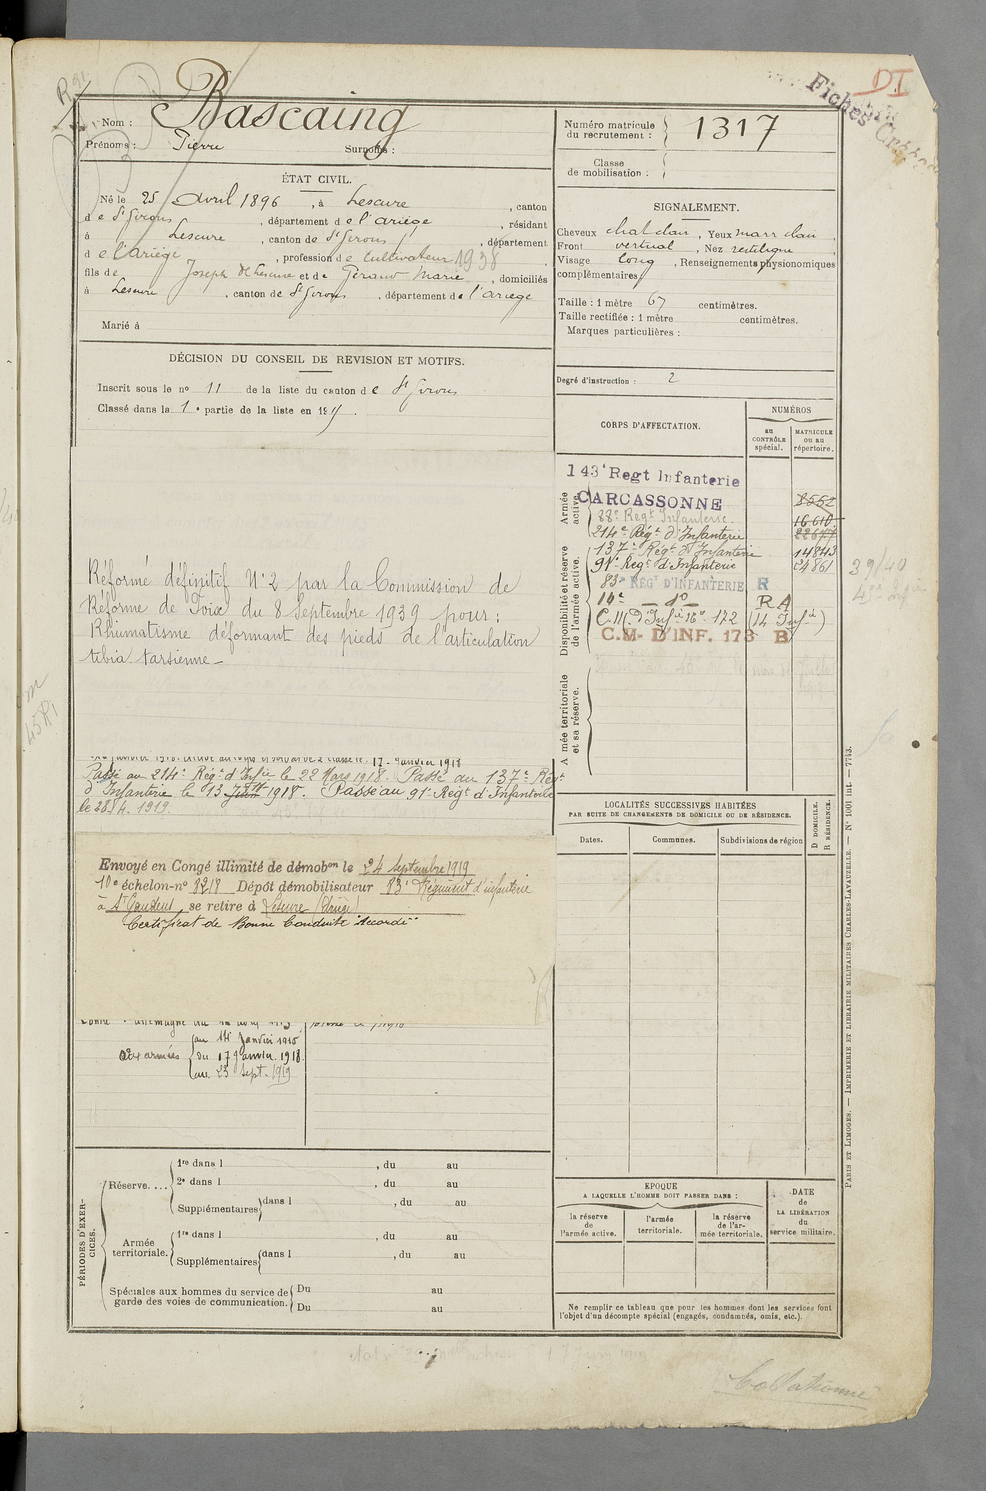 DI
Fiches
Nom : Bascaing
Prénoms : Pierre Surnoms :
ÉTAT CIVIL.
Né le 25 Avril 1896, à Lescure, canton
de St Girons, département de l'Ariège, résidant
à Lescure, canton de St Girons, département
de l'Ariège, profession de Cultivateur 1938
fils de Joseph de Lescure et de Géraud Marie, domiciliés
à Lescure, canton de St Girons, département de l'Ariège
Marié à
DÉCISION DU CONSEIL DE REVISION ET MOTIFS.
Inscrit sous le no 11 de la liste du canton de St Girons
Classé dans la 1e partie de la liste en 191
Réformé définitif N°2 par la Commission de
Réforme de Foix du 8 Septembre 1939 pour :
Rhumatisme déformant des pieds de l'articulation
tibia tarsienne_
17 Janvier 1918
Passé au 214e Régt d'Infie le 22 Mars 1918. Passé au 137e Régt
d'Infanterie le 13 1918. Passé au 91e Régt d'Infanterie
le 28.4.1919.
Envoyé en Congé illimité de démobon le 24 Septembre 1919
10e échelon-no Dépôt démobilisateur 83e Régiment d'infanterie
à St Gaudens se retire à Lescure (Ariège)
Certificat de Bonne Conduite "Accordé"
Aux armées
au 14 Janvier 1918
du 17 Janvier 1918
au 23 Sept. 1919
PÉRIODES D'EXERCICES.
Réserve....
1re dans l , du au
2e dans l , du au
Supplémentaires dans l , du au
Armée territoriale.
1re dans l , du au
Supplémentaires dans l , du au
Spéciales aux hommes du service de garde des voies de communication.
Du au
Du au
Numéro matricule du recrutement : 1317
Classe de mobilisation :
SIGNALEMENT.
Cheveux chat clair, Yeux marr clair,
Front vertical, Nez rectiligne
Visage long, Renseignements physionomiques
complémentaires
Taille : 1 mètre 67 centimètres.
Taille rectifiée : 1 mètre centimètres.
Marques particulières :
Degré d'instruction : 2
CORPS D'AFFECTATION.
NUMÉROS
au CONTRÔLE spécial.
MATRICULE ou au répertoire.
Armée active.
143e Regt Infanterie
CARCASSONNE 8552
88e Regt Infanterie. 16010
214e Régt d'Infanterie
Disponibilité et réserve de l'armée active.
137e Régt d'Infanterie 14843
91e Régt d'Infanterie 24861
83e REGT D'INFANTERIE R
14e _ do _ RA
C.M. D'Infie 172 (14 Infie)
C.M. D'INF. 173 B
39/40
Armée territoriale et sa réserve.
LOCALITÉS SUCCESSIVES HABITÉES
PAR SUITE DE CHANGEMENTS DE DOMICILE OU DE RÉSIDENCE.
Dates. Communes. Subdivisions de région
D DOMICILE.
R RÉSIDENCE.
EPOQUE
A LAQUELLE L'HOMME DOIT PASSER DANS :
la réserve de l'armée active.
l'armée territoriale.
la réserve de l'armée territoriale.
DATE de LA LIBÉRATION du service militaire.
Ne remplir ce tableau que pour les hommes dont les services font
l'objet d'un décompte spécial (engagés, condamnés, omis, etc.).
PARIS ET LIMOGES. — IMPRIMERIE ET LIBRAIRIE MILITAIRES CHARLES-LAVAUZELLE. — No 1001 int. — 7743.
Collationné